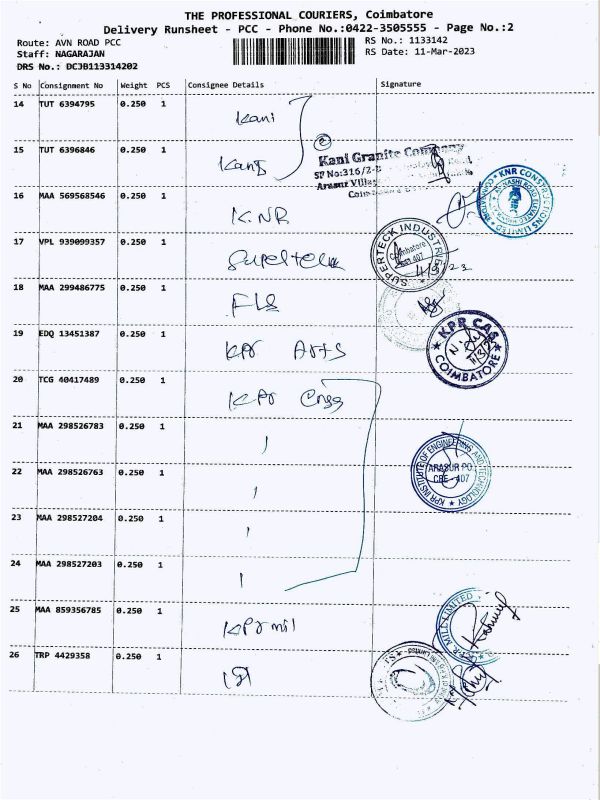 THE PROFESSIONAL COURIERS, Coimbatore
Delivery Runsheet - PCC - Phone No.:0422-3505555 - Page No.:2
Route: AVN ROAD PCC
RS No.: 1133142
Staff: NAGARAJAN
RS Date: 11-Mar-2023
DRS No.: DCJB113314202
S No Consignment No Weight PCS Consignee Details Signature
14 TUT 6394795 0.250 1 Kani
15 TUT 6396846 0.250 1
Kani Granite Company
SF No:316/2-B
16 MAA 569568546 0.250 1 KNR
KNR CONSTRUCTIONS LIMITED
17 VPL 939099357 0.250 1 Supertech
SUPERTECK INDUSTRIES
Coimbatore
18 MAA 299486775 0.250 1
19 EDQ 13451387 0.250 1 KPR Arts
KPR CAS
COIMBATORE
20 TCG 40417489 0.250 1 KPR Engg
21 MAA 298526783 0.250 1
22 MAA 298526763 0.250 1
KPR INSTITUTE OF ENGINEERING AND TECHNOLOGY
ARASUR PO.
CBE - 407
23 MAA 298527204 0.250 1
24 MAA 298527203 0.250 1
25 MAA 859356785 0.250 1 KPR mil
K.P.R. MILL LIMITED
26 TRP 4429358 0.250 1